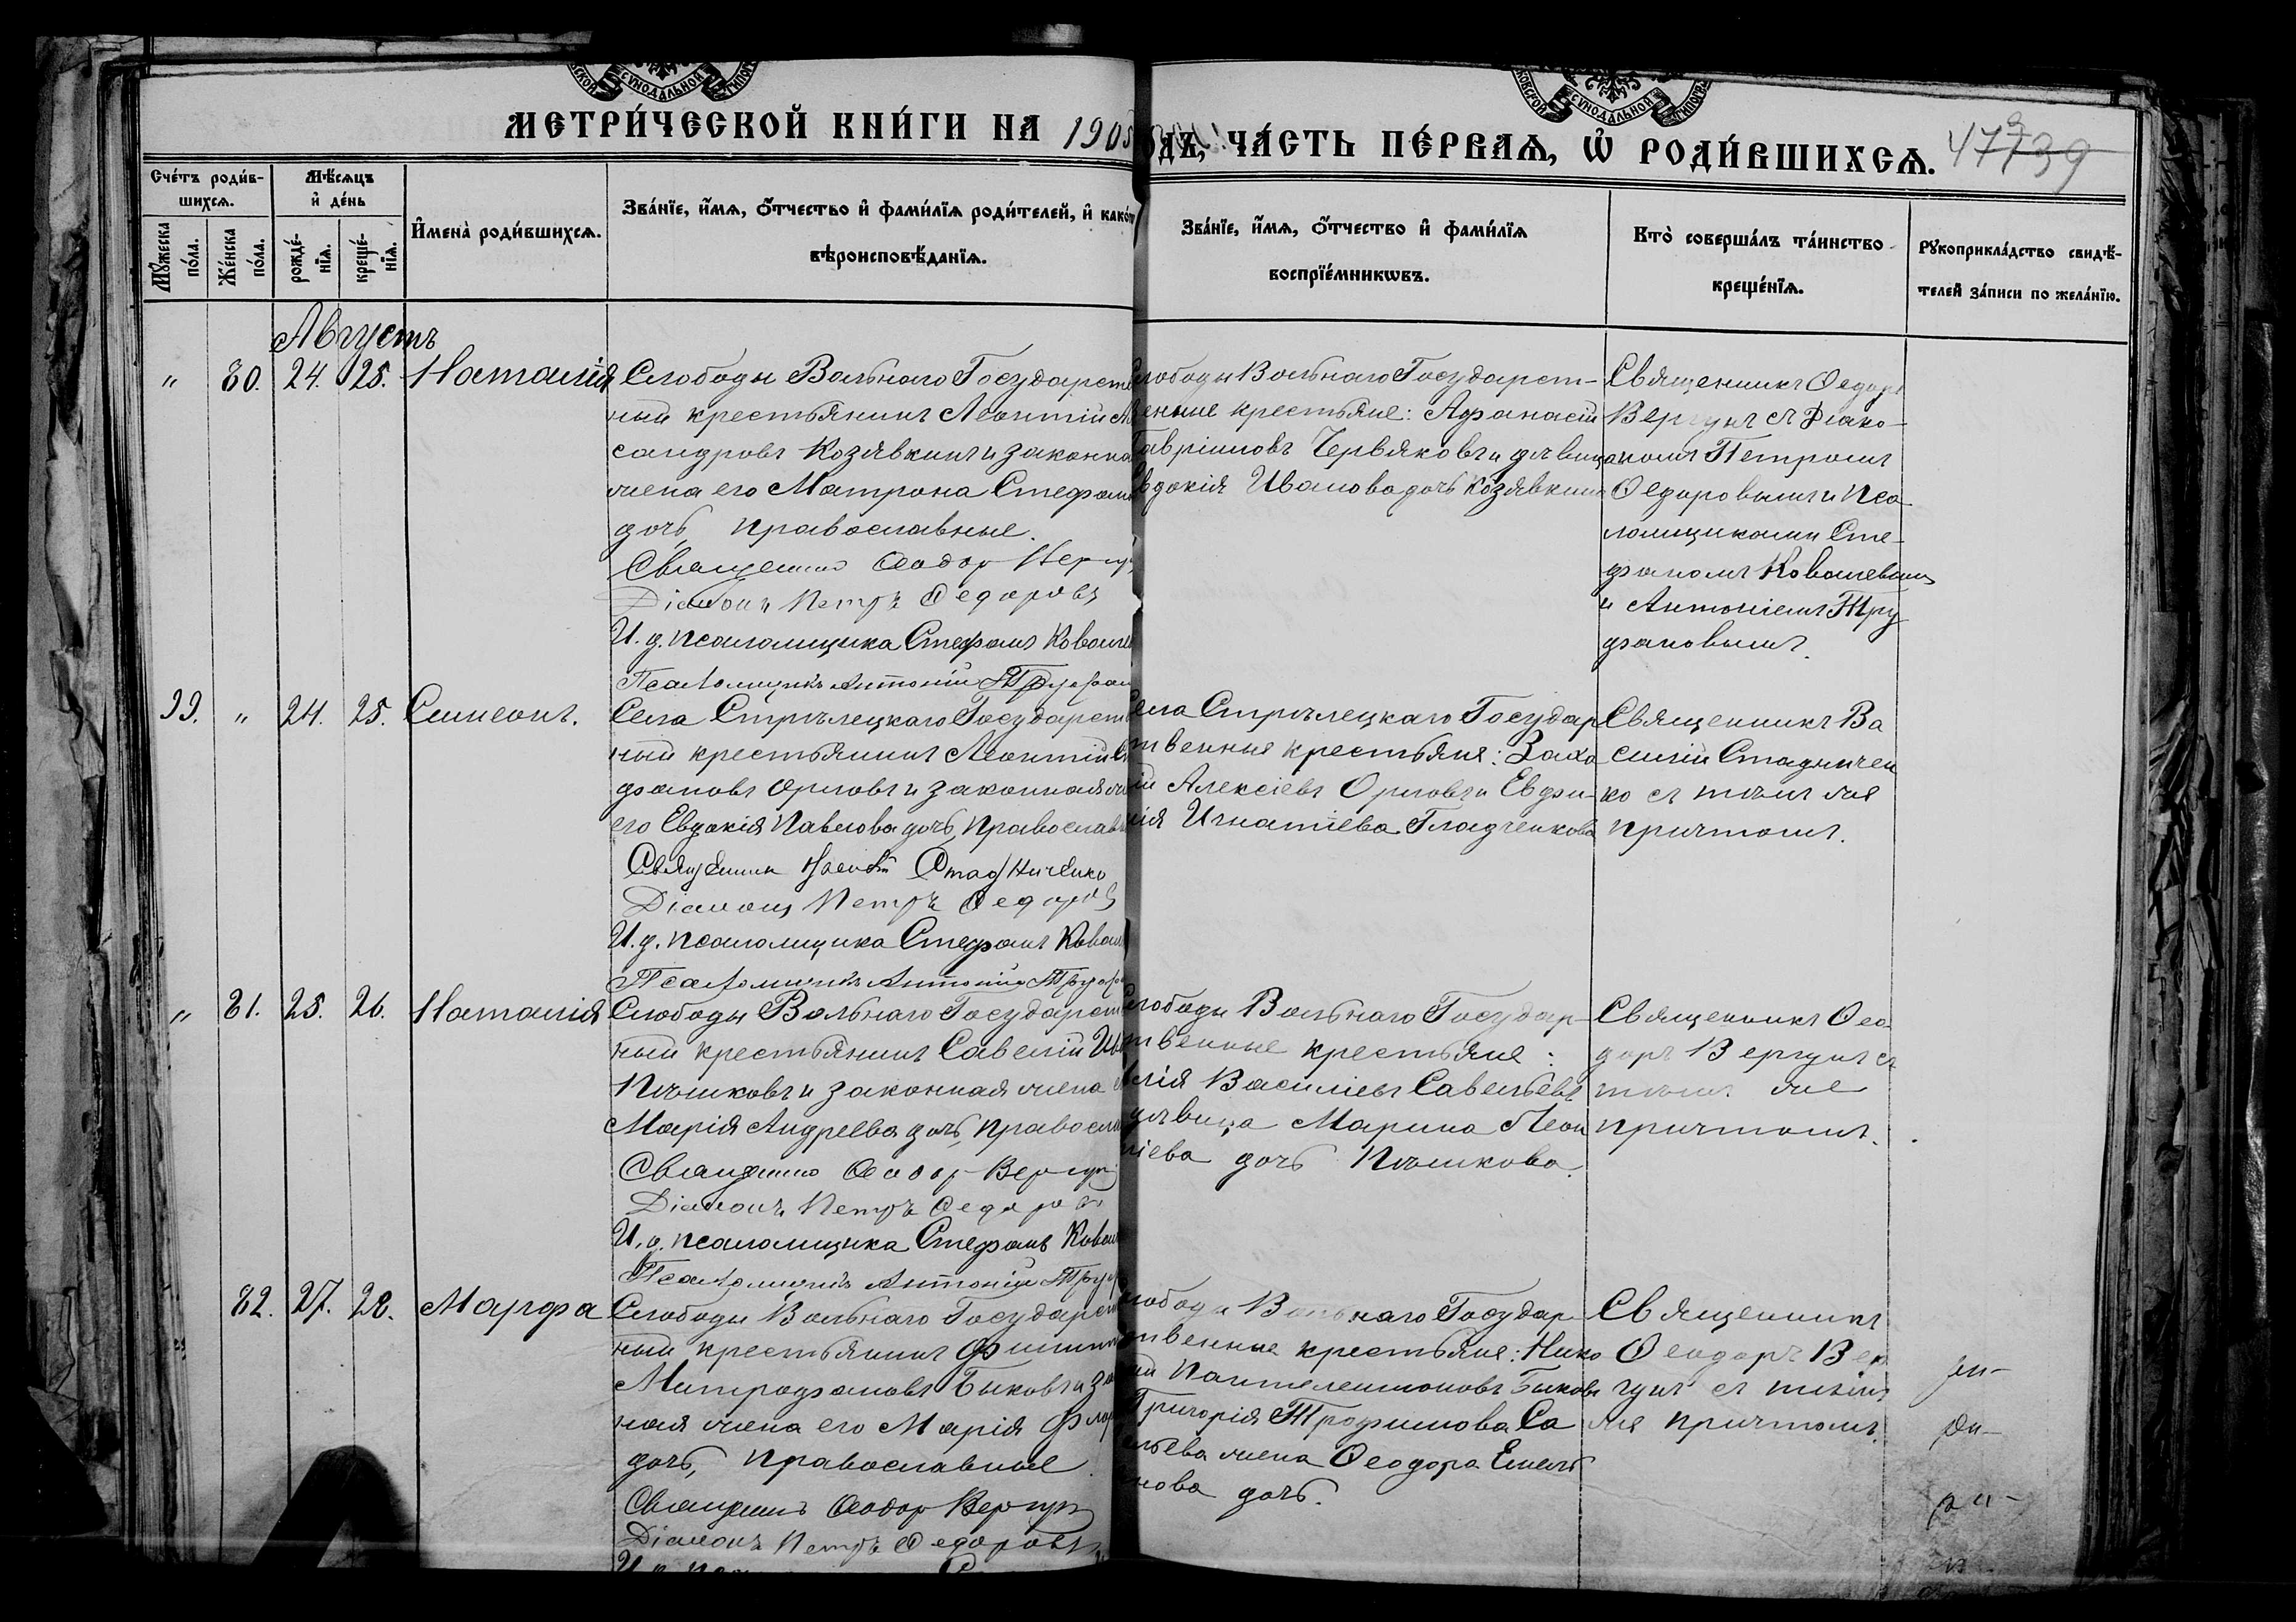 МЕТРИ́ЧЕСКОЙ КНИ́ГИ НА 1905
ОДЪ, ЧА́СТЬ ПЕ́РВАѦ, Ѡ РОДИ́ВШИХСѦ.
47 739
Сче́тъ роди́в-
шихсѧ.
Мꙋ́жеска по́ла.
Же́нска по́ла.
Мѣ́сѧцъ
и де́нь
рожде́-
нїѧ.
креще́-
нїѧ.
Имена̀ роди́вшихсѧ.
Зва́нїе, и́мѧ, ѻ́тчество и фами́лїѧ роди́телей, и како́г
вѣроисповѣ́данїѧ.
Зва́нїе, и́мѧ, ѻ́тчество и фами́лїѧ
воспрїе́мникѡвъ.
Кто̀ соверша́лъ та́инство
креще́нїѧ.
Рꙋкоприкла́дство свидѣ́-
телей за́писи по жела́нїю.
Августъ
" 80. 24. 25. Наталія
Слободы Вольнаго Государстве
ный крестьянинъ Леонтій
сандровъ Козявкинъ и законна
жена его Матрона Стефан
дочь, православные.
Священникъ Ѳеодор Вергу
Діаконъ Петръ Ѳедоровъ
И. д. псаломщика Стефанъ Ковале
Псаломщикъ Антоній Труфан
слободы Вольнаго Государст-
венные крестьяне: Афанасій
Гавріиловъ Червяковъ и дѣвица
Евдокія Иванова дочь Козявкина
Священникъ Ѳедоръ
Вергунъ съ Діако-
номъ Петромъ
Ѳедоровымъ и Пса-
ломщиками Сте-
фаномъ Ковалевымъ
и Антоніемъ Тру
фановымъ.
99. " 24. 25. Симеонъ.
Села Стрѣлецкаго Государст
ный крестьянинъ Леонтій
фановъ Орловъ и законная же
его Евдокія Павлова дочь, Православн
Священник Стадниченко
Діаконъ Петръ Ѳедоровъ
И. д. псаломщика Стефанъ Ковал
Псаломщикъ Антоній Труфа
села Стрѣлецкаго Государ
ственные крестьяне: Заха
ій Алексіевъ Орловъ и Евфи-
мія Игнатіева Гладченкова
Священникъ Ва
силій Стадничен
ко съ тѣмъ же
причтомъ.
" 81. 25. 26. Наталія
Слободы Вольнаго Государст
ный крестьянинъ Савелій Ив
Пѣшковъ и законная жена
Марія Андреева дочь, правосла
Священникъ Ѳеодор Вергун
Діаконъ Петръ Ѳедоровъ
И. д. псаломщика Стефанъ Ковал
Псаломщикъ Антоній Труф
слободы Вольнаго Государ-
ственные крестьяне:
Василіевъ Савельевъ
дѣвица Марина Леон
тіева дочь Пѣшкова.
Священникъ Ѳео
доръ Вергунъ съ
тѣмъ же
причтомъ.
82. 27. 28. Марфа
Слободы Вольнаго Государст
ный крестьянинъ Филипп
Митрофановъ Быковъ и за
ная жена его Марія Флор
дочь, православные.
Священникъ Ѳеодор Вергун
Діаконъ Петръ Ѳедоровъ
слободы Вольнаго Государ
ственные крестьяне: Нико
ай Пантелеимоновъ Быковъ
Григорія Трофимова Са
ельева жена Ѳеодора Емель
нова дочь.
Священникъ
Ѳеодоръ Вер
гунъ съ тѣмъ
же причтомъ.